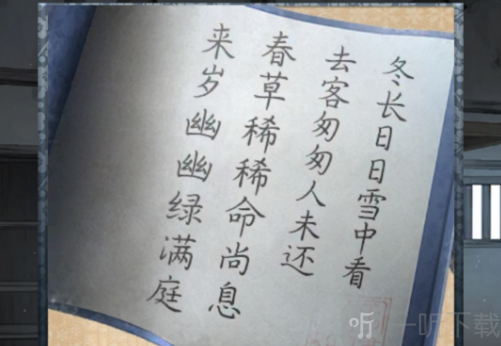 冬长日日雪中看
去客匆匆人未还
春草稀稀命尚息
来岁幽幽绿满庭
听 一听下载